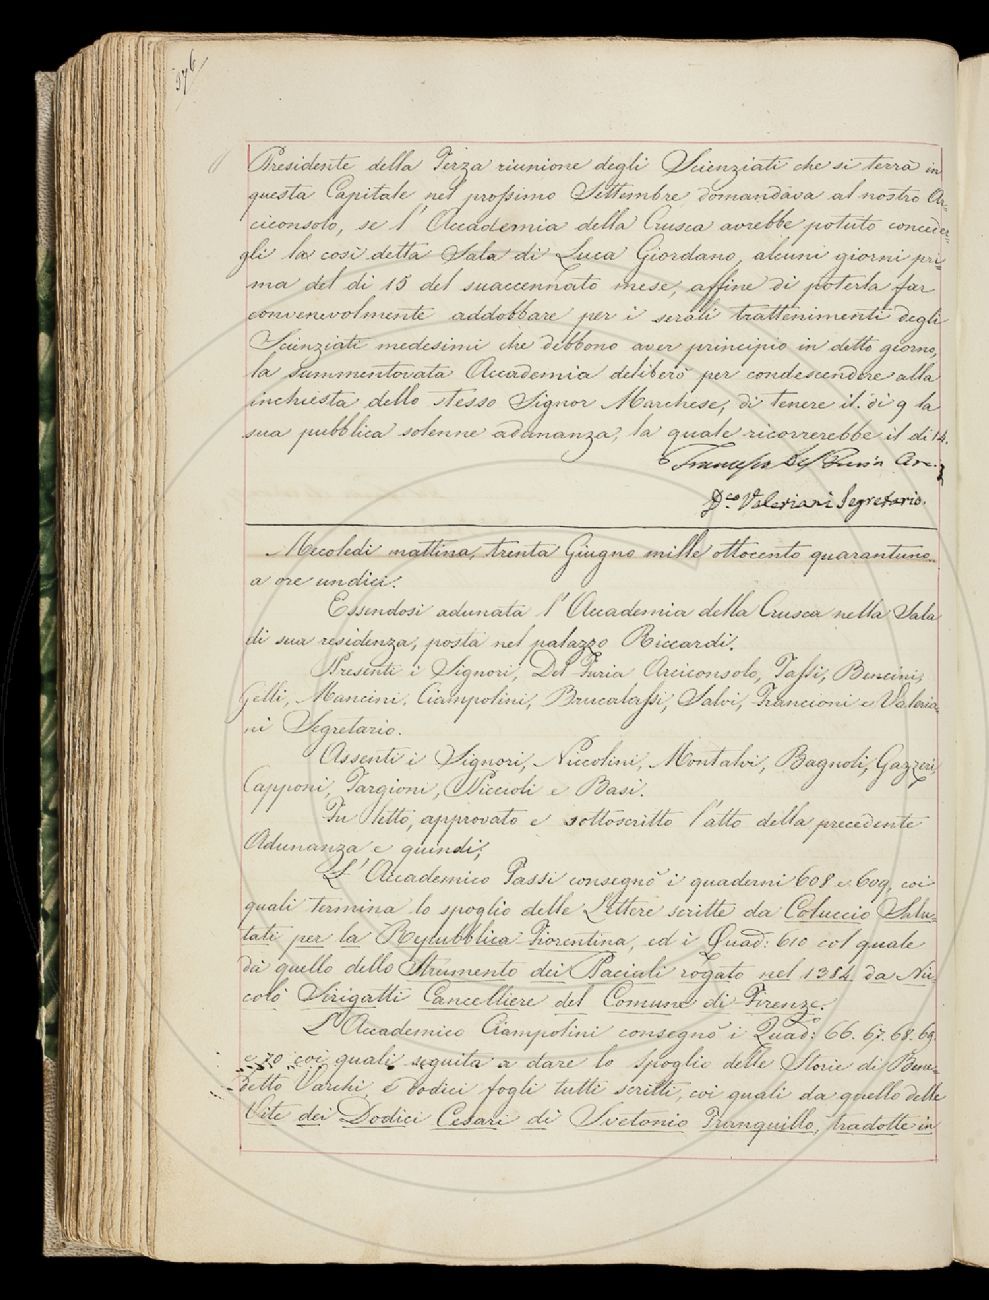 376
Presidente della Terza riunione degli Scienziati che si terrà in
questa Capitale nel prossimo Settembre domandava al nostro Ar=
ciconsolo, se l'Accademia della Crusca avrebbe potuto conceder=
gli la così detta Sala di Luca Giordano, alcuni giorni pri=
ma del dì 15 del suaccennato mese, affine di poterla far
convenevolmente addobbare per i serali trattenimenti degli
Scienziati medesimi che debbono aver principio in detto giorno,
la summentovata Accademia deliberò per condescendere alla
inchiesta dello stesso Signor Marchese, di tenere il dì 9 la
sua pubblica solenne adunanza, la quale ricorrerebbe il dì 14.
Francesco Del Furia Arc.
D.co Valeriani Segretario.
Mecoledì mattina, trenta Giugno mille ottocento quarantuno
a ore undici.
Essendosi adunata l'Accademia della Crusca nella Sala
di sua residenza, posta nel palazzo Riccardi.
Presenti i Signori, Del Furia Arciconsolo, Tassi, Bencini,
Gelli, Mancini, Ciampolini, Brucalassi, Salvi, Francioni e Valeria=
ni Segretario.
Assenti i Signori, Niccolini, Montalvi, Bagnoli, Gazzeri,
Capponi, Targioni, Niccioli e Basi.
Fu letto, approvato e sottoscritto l'atto della precedente
Adunanza e quindi;
L'Accademico Tassi consegnò i quaderni 608 e 609, coi
quali termina lo spoglio delle Lettere scritte da Coluccio Salu=
tati per la Repubblica Fiorentina, ed i Quad: 610 col quale
dà quello dello Strumento dei Paciali rogato nel 1384 da Nic=
colò Sirigatti Cancelliere del Comune di Firenze.
L'Accademico Ciampolini consegnò i Quad: 66. 67. 68. 69.
e 70 coi quali seguita a dare lo spoglio delle Storie di Bene=
detto Varchi e dodici fogli tutti scritti, coi quali da quello delle
Vite dei Dodici Cesari di Svetonio Tranquillo, tradotte in